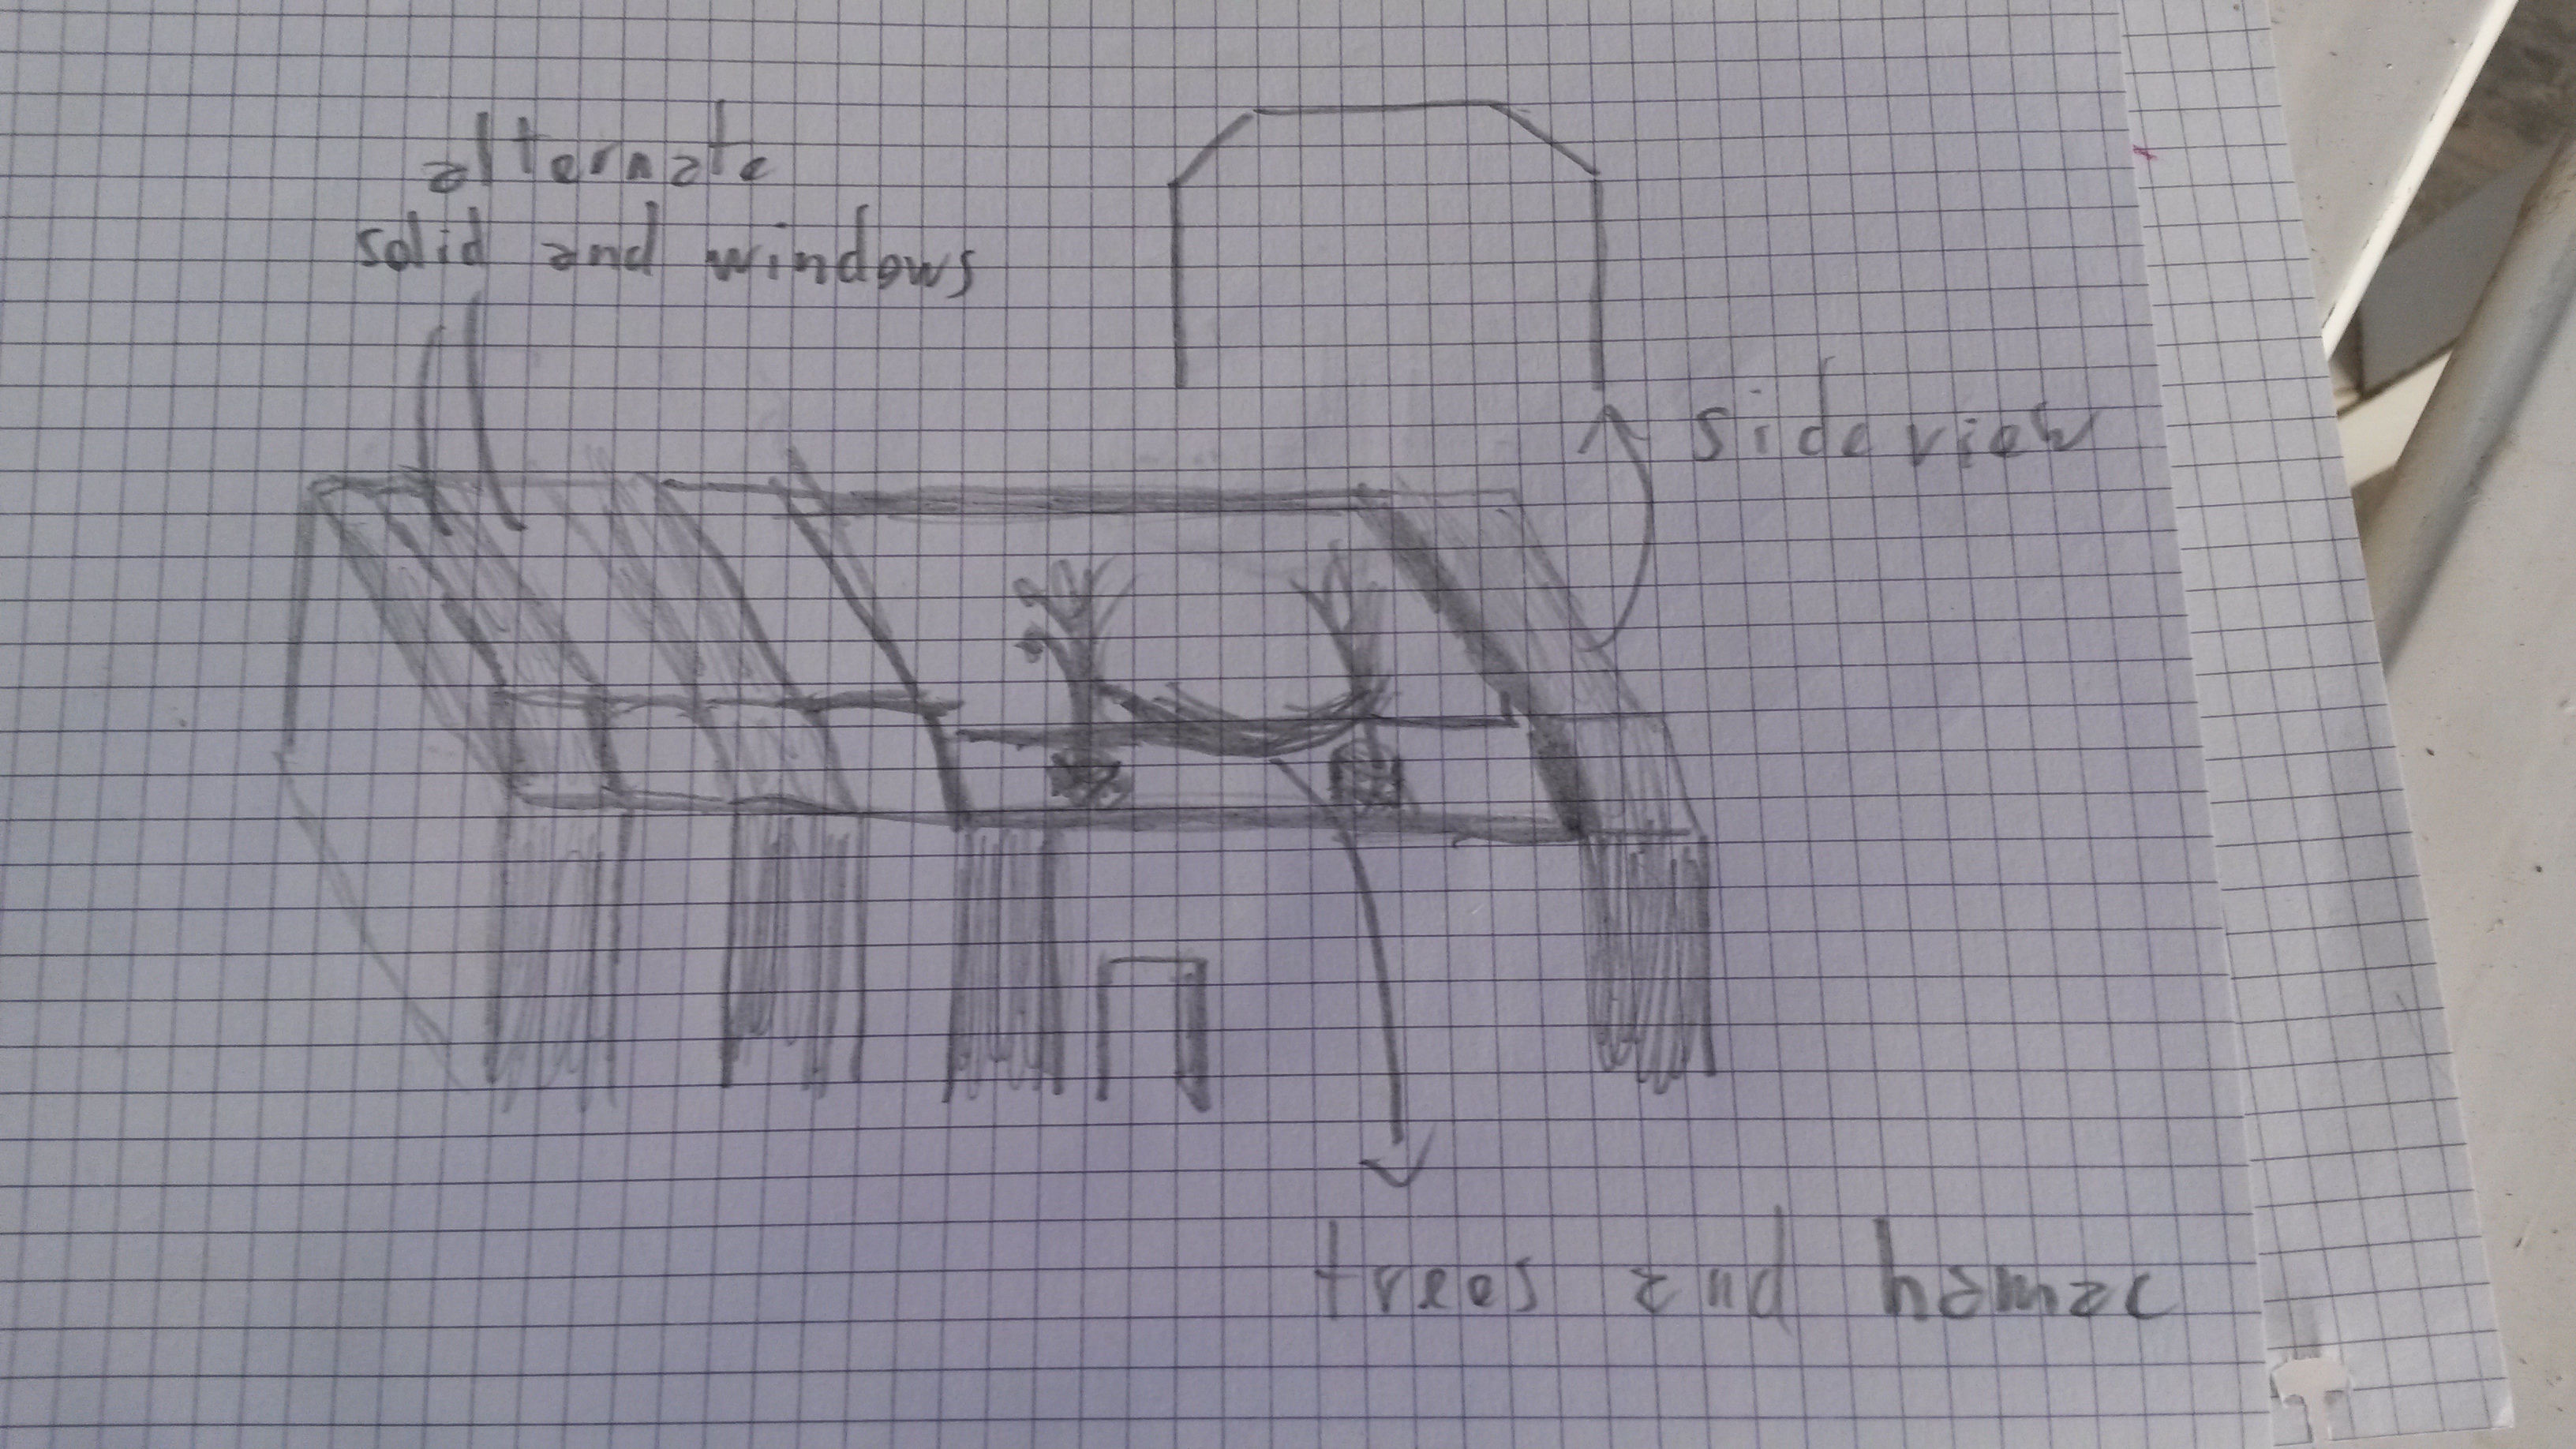 alternate
solid and windows
side view
trees and hamac